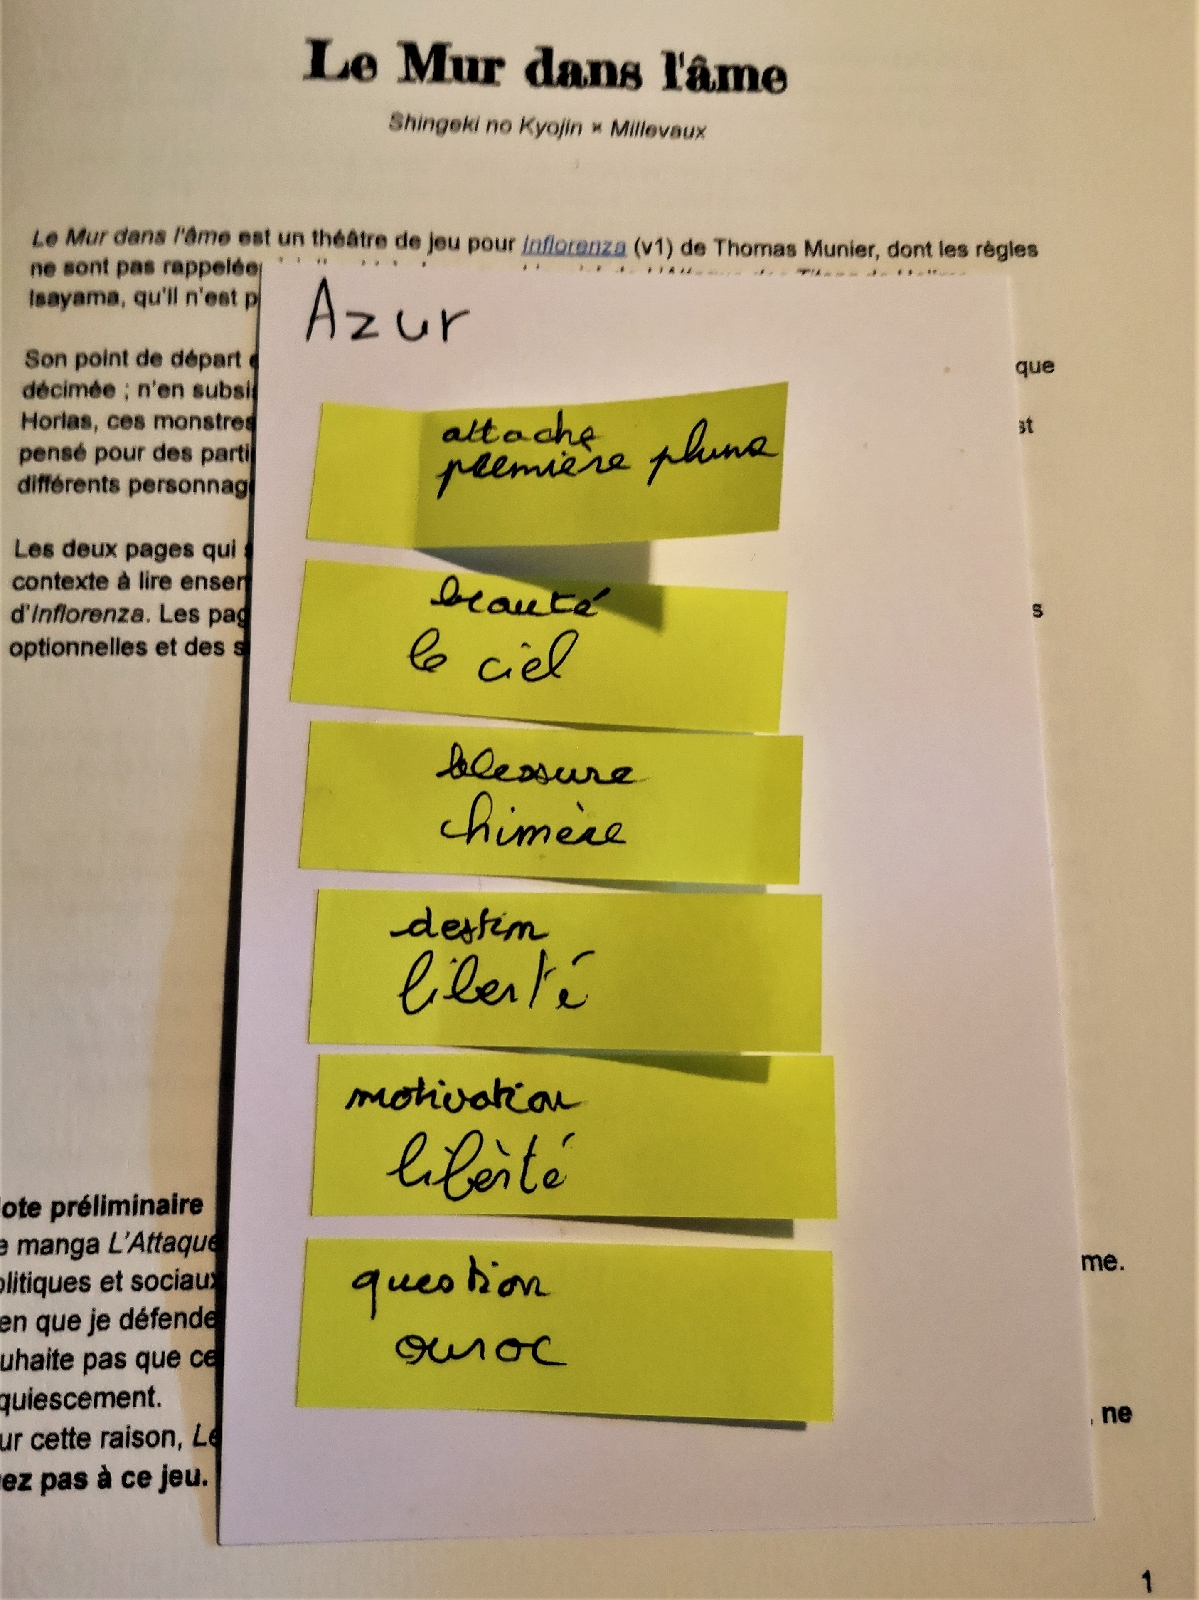 Le Mur dans l'âme
Shingeki no Kyojin × Millevaux
Le Mur dans l'âme est un théâtre de jeu pour Inflorenza (v1) de Thomas Munier, dont les règles
ne sont pas rappelée
Isayama, qu'il n'est p
Son point de départ
que
décimée ; n'en subsi
Horlas, ces monstres
st
pensé pour des parti
différents personnag
Les deux pages qui
contexte à lire enser
d'Inflorenza. Les pag
s
optionnelles et des s
Azur
attache
première plume
beauté
le ciel
blessure
chimère
destin
liberté
motivation
libèté
question
ouroc
ote préliminaire
e manga L'Attaque
me.
olitiques et sociaux
en que je défende
uhaite pas que ce
quiescement.
, ne
ur cette raison, Le
ez pas à ce jeu.
1